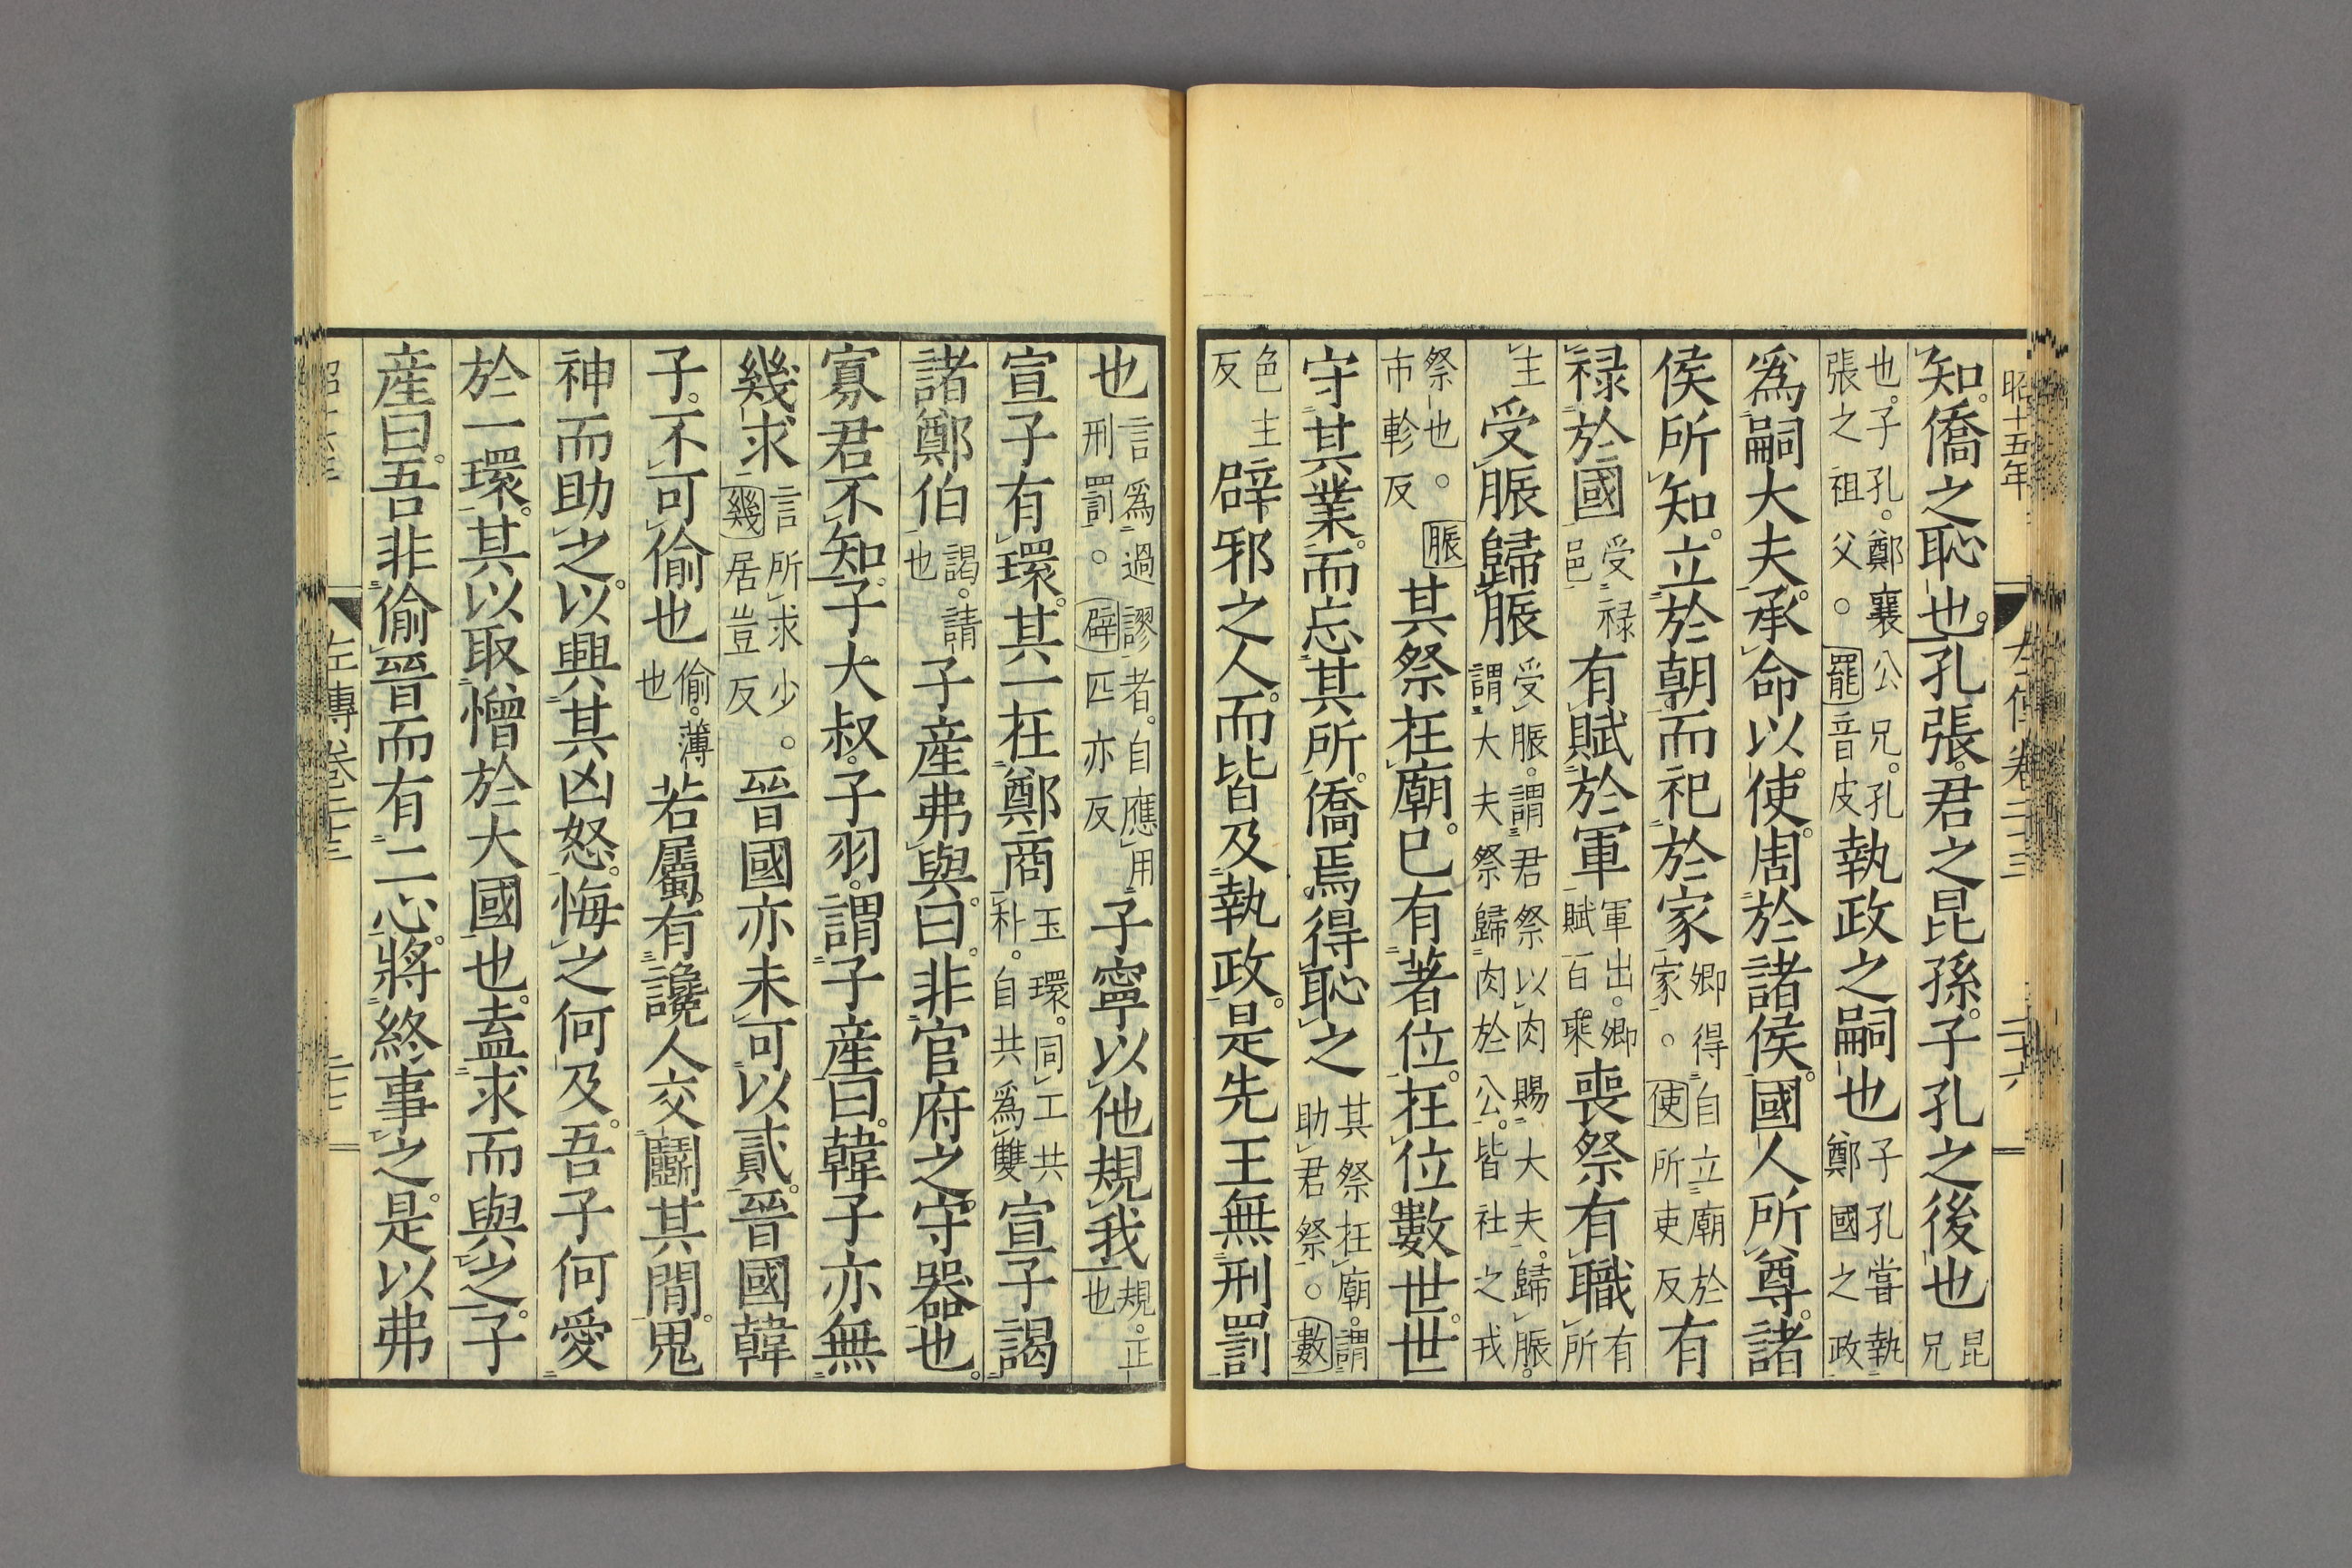 昭十五年 左傳卷二十三 二十六
知。僑之恥也。孔張。君之昆孫。子孔之後也 昆兄
也。子孔。鄭襄公兄。孔張之祖父。○罷音皮 執政之嗣也 子孔嘗執鄭國之政
爲嗣大夫。承命以使。周於諸侯。國人所尊。諸
侯所知。立於朝。而祀於家 卿得自立廟於家。○使所吏反 有
禄於國 受禄邑 有賦於軍 軍出。卿賦百乘 喪祭有職 有所
主 受脤歸脤 受脤。謂君祭以肉賜大夫。歸脤。謂大夫祭歸肉於公。皆社之戎
祭也。○脤市軫反 其祭在廟。已有著位。在位數世。世
守其業。而忘其所。僑焉得恥之 其祭在廟。謂助君祭。○數
色主反 辟邪之人。而皆及執政。是先王無刑罰
也 言爲過謬者。自應用刑罰。○辟匹亦反 子寧以他規我 規。正也
宣子有環。其一在鄭商 玉環。同工共朴。自共爲雙 宣子謁
諸鄭伯 謁。請也 子産弗與。曰。非官府之守器也。
寡君不知。子大叔。子羽。謂子産曰。韓子亦無
幾求 言所求少。○幾居豈反 晉國亦未可以貳。晉國韓
子。不可偷也 偷。薄也 若屬有讒人交鬭其閒。鬼
神而助之。以興其凶怒。悔之何及。吾子何愛
於一環。其以取憎於大國也。盍求而與之。子
産曰。吾非偷晉而有二心。將終事之。是以弗
左傳卷二十三